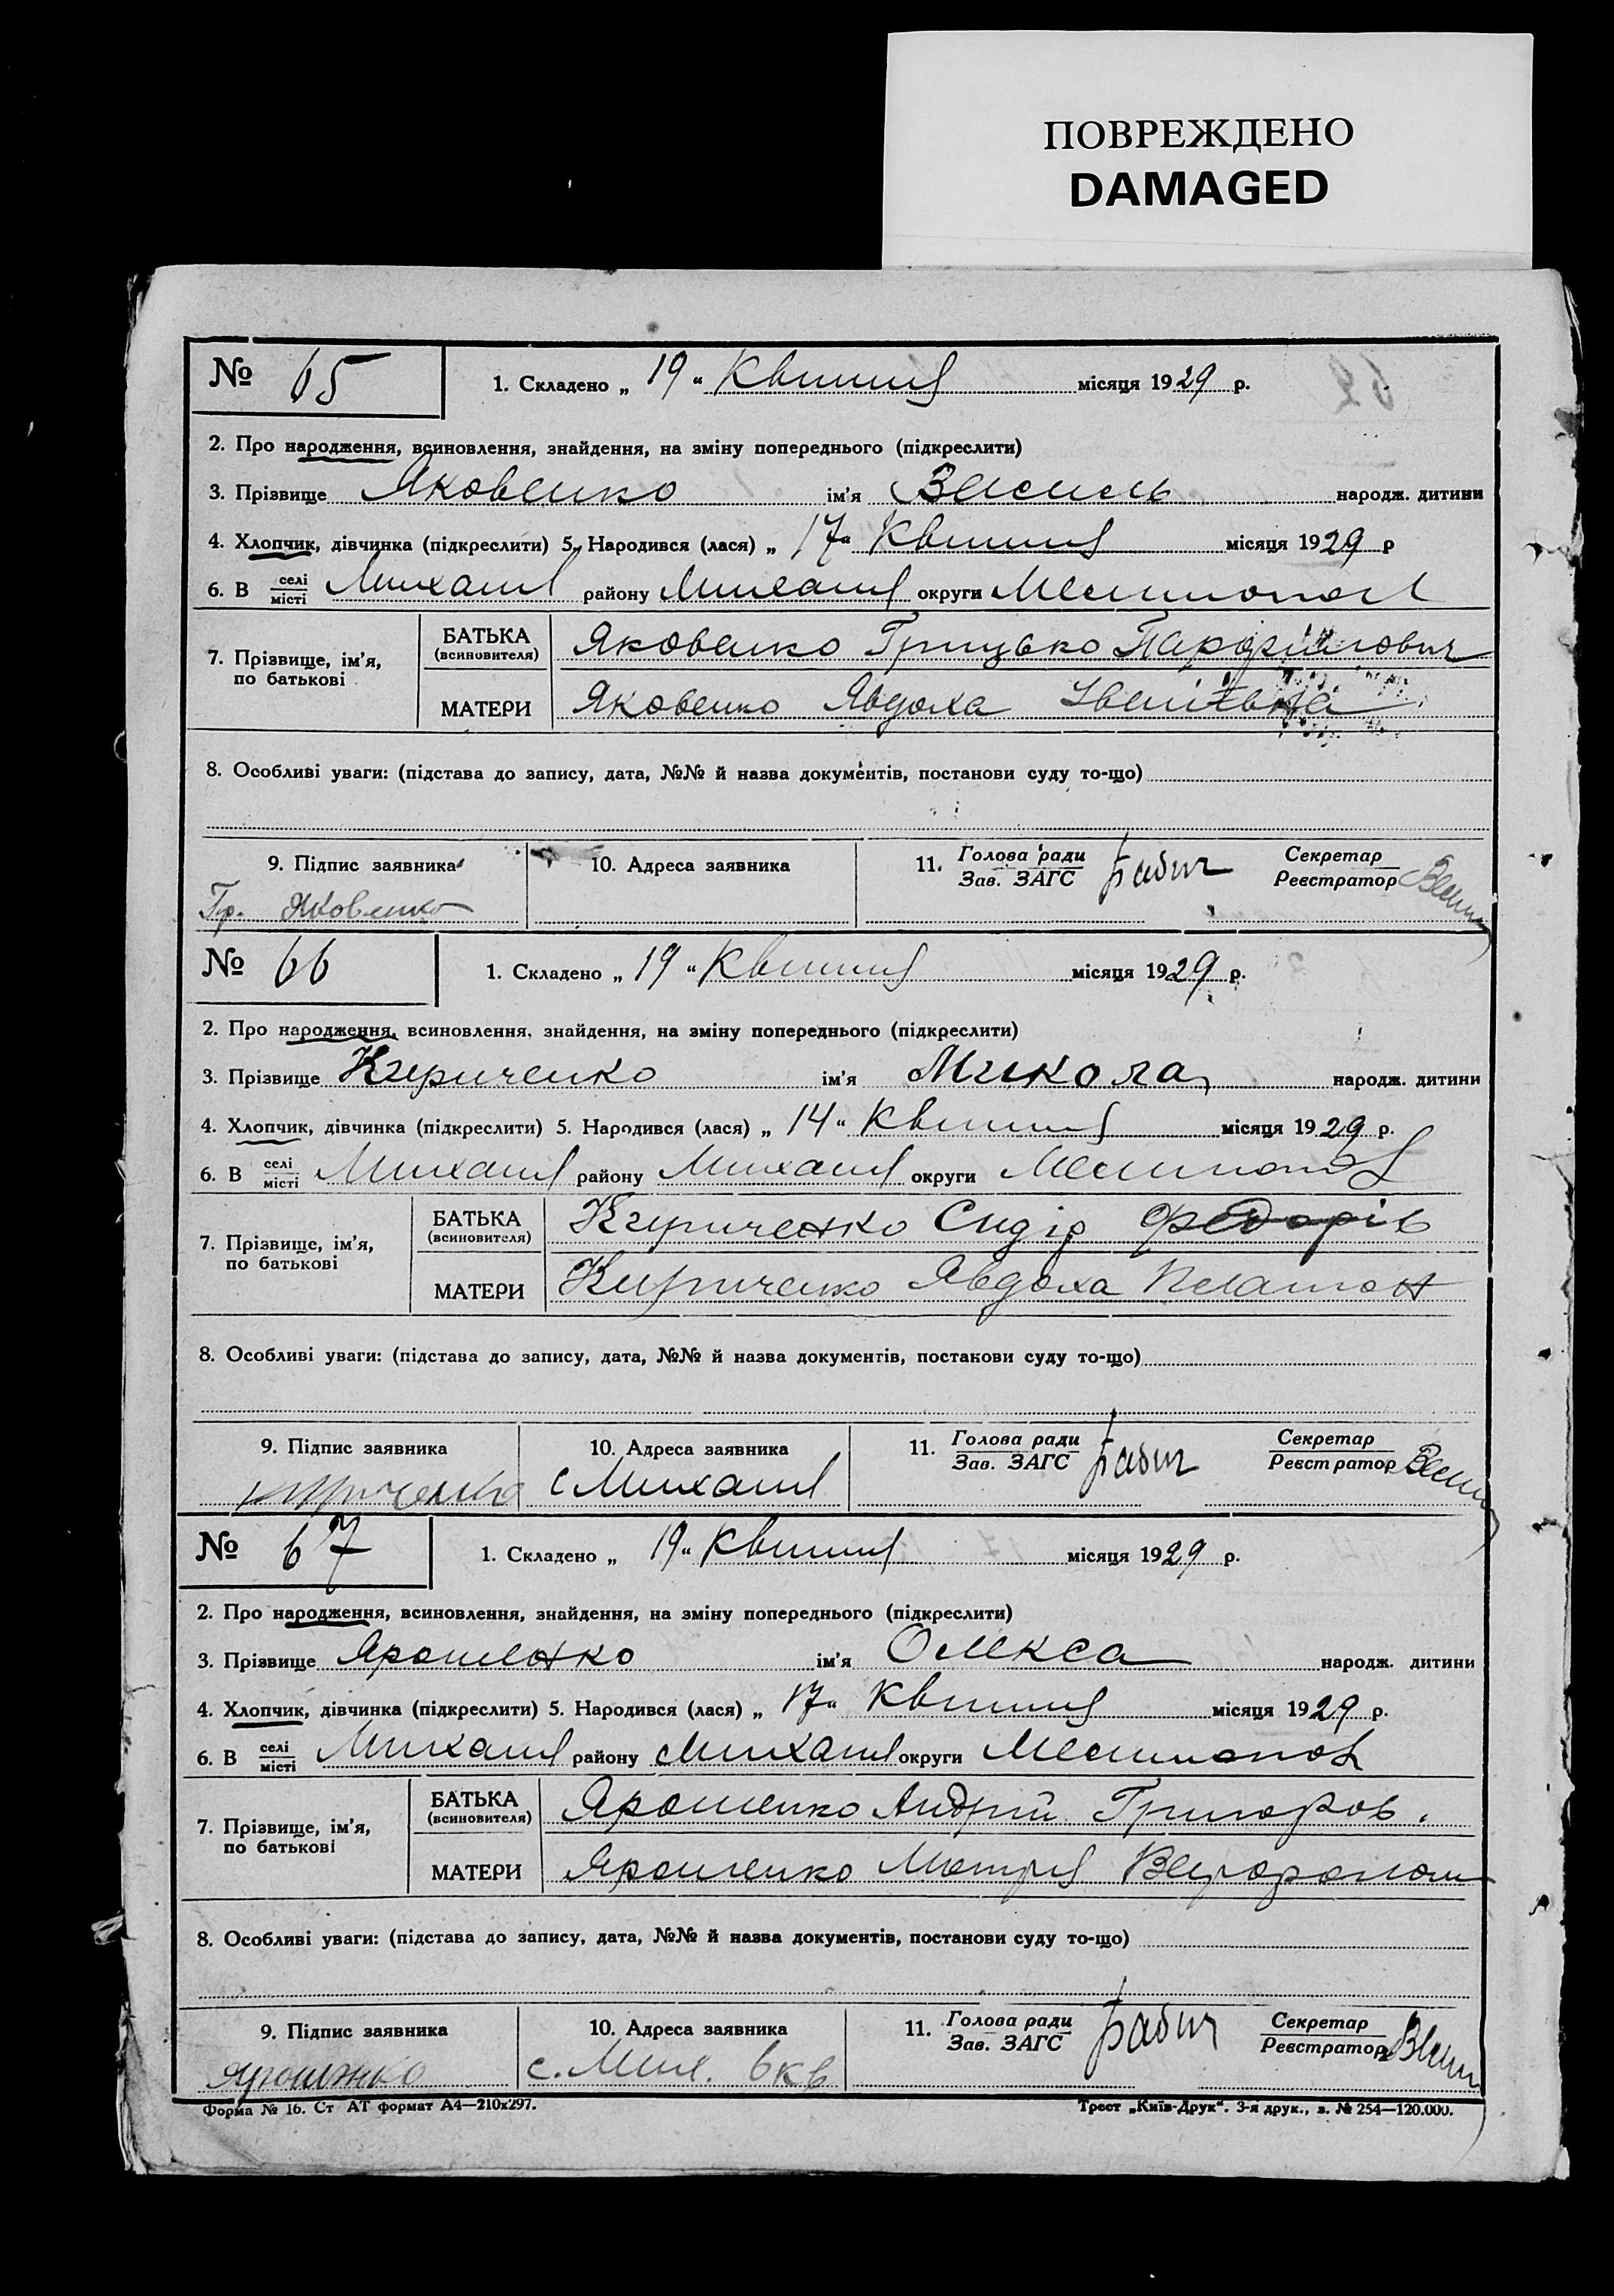 ПОВРЕЖДЕНО
DAMAGED
№ 65 1. Складено „ 19 “ Квітня місяця 1929 р.
2. Про народження, всиновлення, знайдення, на зміну попереднього (підкреслити)
3. Прізвище Яковенко ім’я Василь народж. дитини
4. Хлопчик, дівчинка (підкреслити) 5. Народився (лася) „ 17 “ Квітня місяця 1929 р
6. В селі місті Михайл району Михайл округи Мелитопол
7. Прізвище, ім’я, по батькові
БАТЬКА (всиновителя) Яковенко Грицько Парфилович
МАТЕРИ Яковенко Явдоха Іванівна
8. Особливі уваги: (підстава до запису, дата, №№ й назва документів, постанови суду то-що)
9. Підпис заявника 10. Адреса заявника 11. Голова ради Зав. ЗАГС Бабич Секретар Реєстратор
Гр. Яковенко
№ 66 1. Складено „ 19 “ Квітня місяця 1929 р.
2. Про народження, всиновлення, знайдення, на зміну попереднього (підкреслити)
3. Прізвище Кириченко ім’я Микола народж. дитини
4. Хлопчик, дівчинка (підкреслити) 5. Народився (лася) „ 14 “ Квітня місяця 1929 р.
6. В селі місті Михайл району Михайл округи Мелитопол
7. Прізвище, ім’я, по батькові
БАТЬКА (всиновителя) Кириченко Сидір Федорів
МАТЕРИ Кириченко Явдоха Платон
8. Особливі уваги: (підстава до запису, дата, №№ й назва документів, постанови суду то-що)
9. Підпис заявника 10. Адреса заявника 11. Голова ради Зав. ЗАГС Бабич Секретар Реєстратор
Кириченко с Михайл
№ 67 1. Складено „ 19 “ Квітня місяця 1929 р.
2. Про народження, всиновлення, знайдення, на зміну попереднього (підкреслити)
3. Прізвище Ярошенко ім’я Олекса народж. дитини
4. Хлопчик, дівчинка (підкреслити) 5. Народився (лася) „ 17 “ Квітня місяця 1929 р.
6. В селі місті Михайл району Михайл округи Мелитопол
7. Прізвище, ім’я, по батькові
БАТЬКА (всиновителя) Ярошенко Андрій Григоров.
МАТЕРИ Ярошенко Мотря
8. Особливі уваги: (підстава до запису, дата, №№ й назва документів, постанови суду то-що)
9. Підпис заявника 10. Адреса заявника 11. Голова ради Зав. ЗАГС Бабич Секретар Реєстратор
Ярошенко с. Мих. 6 кв
Форма № 16. Ст АТ формат А4—210х297. Трест „Київ-Друк“. 3-я друк., з. № 254—120.000.